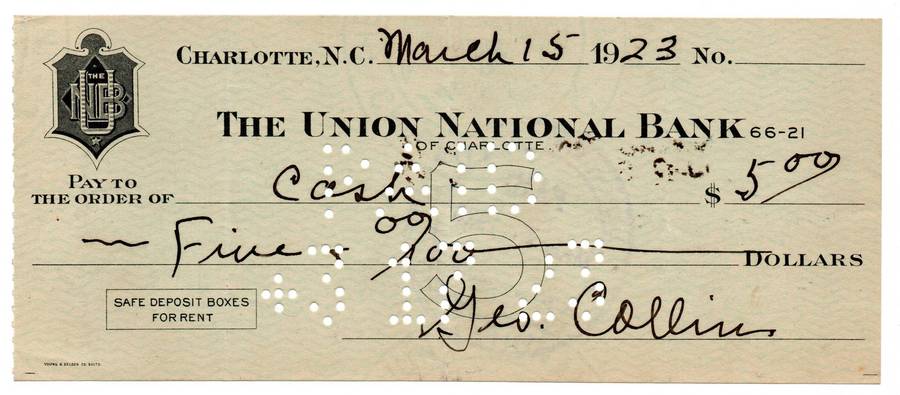 CHARLOTTE, N.C. March 15 1923 No.
THE
UNB
THE UNION NATIONAL BANK 66-21
OF CHARLOTTE.
PAY TO
THE ORDER OF Cash $ 5 00
~ Five - 00/100 DOLLARS
5
SAFE DEPOSIT BOXES
FOR RENT
Geo. Collins